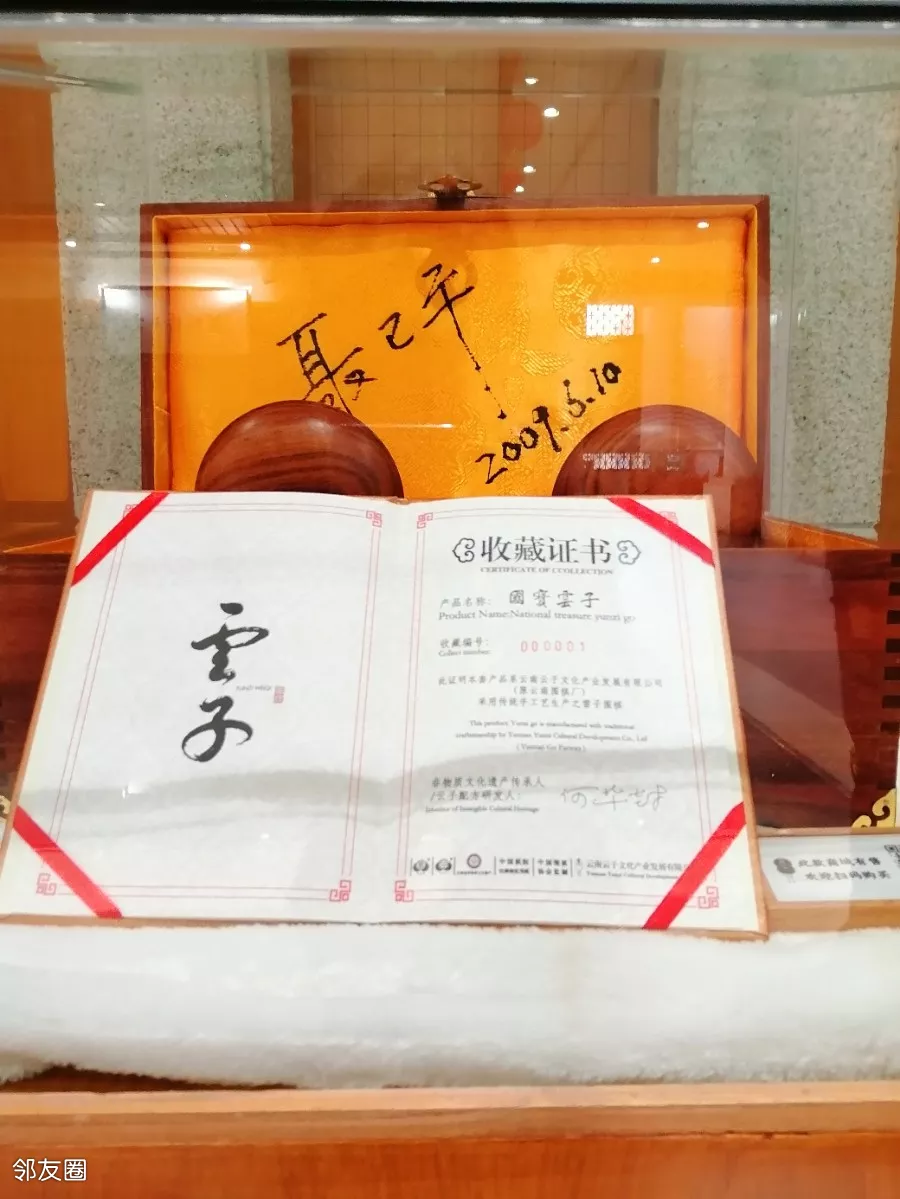 聂卫平
2009.6.10
雲子
YUNZI WEIQI
收藏证书
CERTIFICATE OF CCOLLECTION
产品名称： 國寶雲子
Product Name:National treasure yunzi go
收藏编号： 000001
Collect number:
此证明本套产品系云南云子文化产业发展有限公司
(原云南围棋厂)
采用传统手工艺生产之雲子围棋
This product Yunzi go is manufactured with traditional
craftsmanship by Yunnan Yunzi Cultural Development Co., Ltd
非物质文化遗产传承人
/云子配方研发人：
Inheritor of Intangible Cultural Heritage
中国围棋 中国围棋
协会监制 云南云子文化产业发展有限
Yunnan Yunzi Cultural Development
此款商城有售
欢迎扫码购买
邻友圈